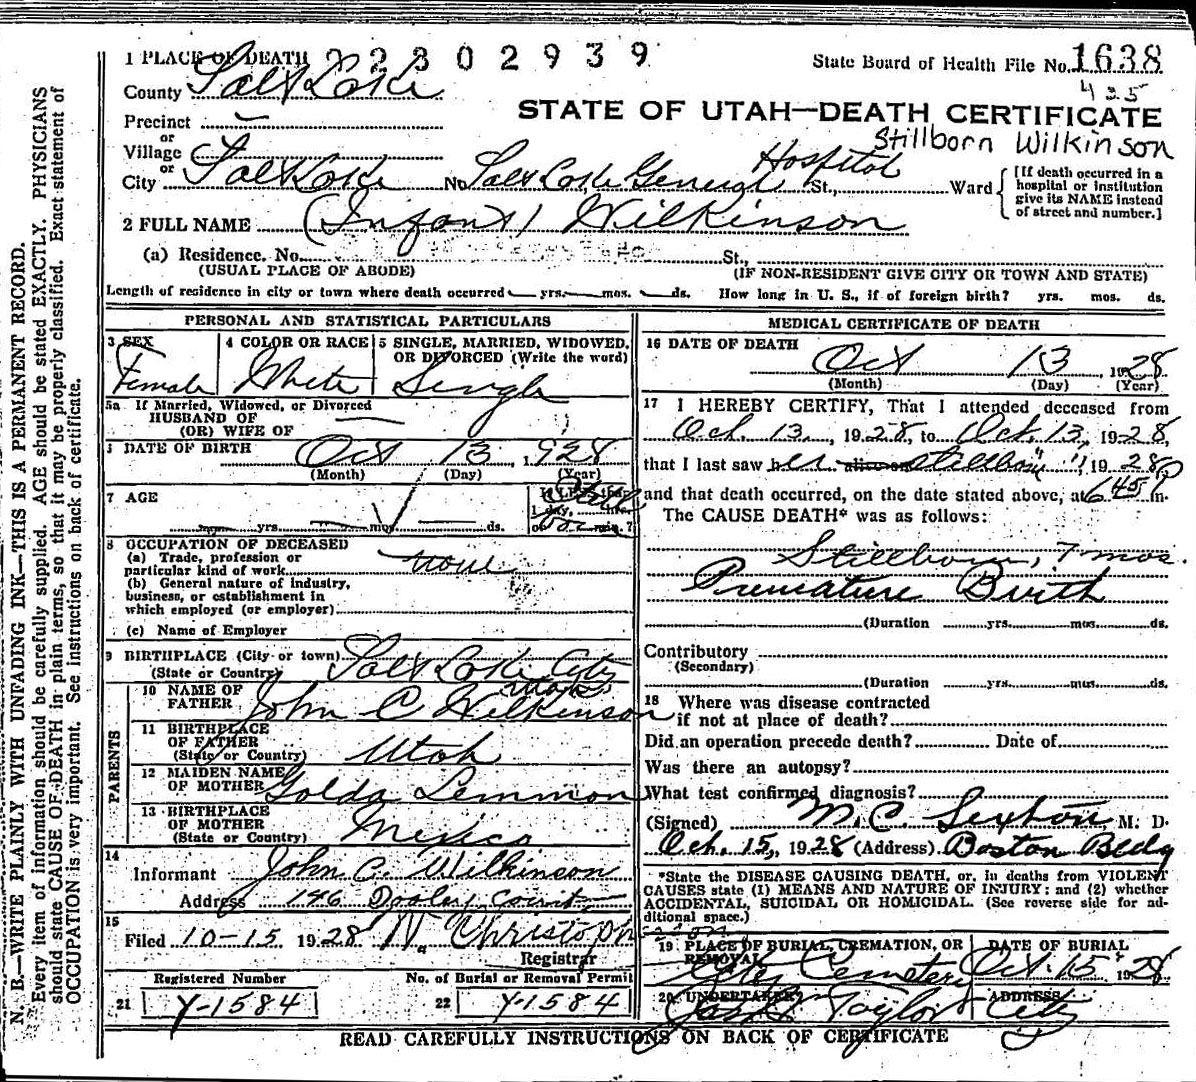 1 PLACE OF DEATH 2 2 3 0 2 9 3 9
State Board of Health File No. 1638
425
County Salt Lake
STATE OF UTAH—DEATH CERTIFICATE
Precinct —
Stillborn Wilkinson
or
Village
or
City Salt Lake No. Salt Lake General Hospital St., Ward
[If death occurred in a hospital or institution give its NAME instead of street and number.]
2 FULL NAME (Infant) Wilkinson
(a) Residence. No. St.,
(USUAL PLACE OF ABODE) (IF NON-RESIDENT GIVE CITY OR TOWN AND STATE)
Length of residence in city or town where death occurred — yrs. — mos. — ds. How long in U. S., if of foreign birth? yrs. mos. ds.
PERSONAL AND STATISTICAL PARTICULARS
3 SEX 4 COLOR OR RACE 5 SINGLE, MARRIED, WIDOWED,
OR DIVORCED (Write the word)
Female White Single
5a If Married, Widowed, or Divorced
HUSBAND OF
(OR) WIFE OF —
DATE OF BIRTH Oct 13, 1928
(Month) (Day) (Year)
7 AGE
yrs. mos. ds.
8 OCCUPATION OF DECEASED
(a) Trade, profession or
particular kind of work none
(b) General nature of industry,
business, or establishment in
which employed (or employer)
(c) Name of Employer
9 BIRTHPLACE (City or town) Salt Lake City
(State or Country) Utah
PARENTS
10 NAME OF
FATHER John C Wilkinson
11 BIRTHPLACE
OF FATHER
(State or Country) Utah
12 MAIDEN NAME
OF MOTHER Golda Lemmon
13 BIRTHPLACE
OF MOTHER
(State or Country) Mexico
14
Informant John C. Wilkinson
Address 146 Dooley Court
15
Filed 10-15 1928 N. Christopherson
Registrar
Registered Number No. of Burial or Removal Permit
21 Y-1584 22 Y-1584
MEDICAL CERTIFICATE OF DEATH
16 DATE OF DEATH
Oct 13, 1928
(Month) (Day) (Year)
17 I HEREBY CERTIFY, That I attended deceased from
Oct. 13, 1928, to Oct. 13, 1928,
that I last saw her alive on "Stillborn" 1928,
and that death occurred, on the date stated above, at 6 45 p m.
The CAUSE DEATH* was as follows:
Stillborn, 7 mos.
Premature Birth
(Duration yrs. mos. ds.
Contributory
(Secondary)
(Duration yrs. mos. ds.
18 Where was disease contracted
if not at place of death?
Did an operation precede death? Date of
Was there an autopsy?
What test confirmed diagnosis?
(Signed) M. C. Sexton, M. D.
Oct. 15, 1928 (Address) Boston Bldg
*State the DISEASE CAUSING DEATH, or, in deaths from VIOLENT
CAUSES state (1) MEANS AND NATURE OF INJURY; and (2) whether
ACCIDENTAL, SUICIDAL OR HOMICIDAL. (See reverse side for ad-
ditional space.)
19 PLACE OF BURIAL, CREMATION, OR DATE OF BURIAL
REMOVAL
City Cemetery Oct 15 1928
20 UNDERTAKER ADDRESS
Taylor City
READ CAREFULLY INSTRUCTIONS ON BACK OF CERTIFICATE
N. B.—WRITE PLAINLY WITH UNFADING INK—THIS IS A PERMANENT RECORD.
Every item of information should be carefully supplied. AGE should be stated EXACTLY. PHYSICIANS
should state CAUSE OF DEATH in plain terms, so that it may be properly classified. Exact statement of
OCCUPATION is very important. See instructions on back of certificate.